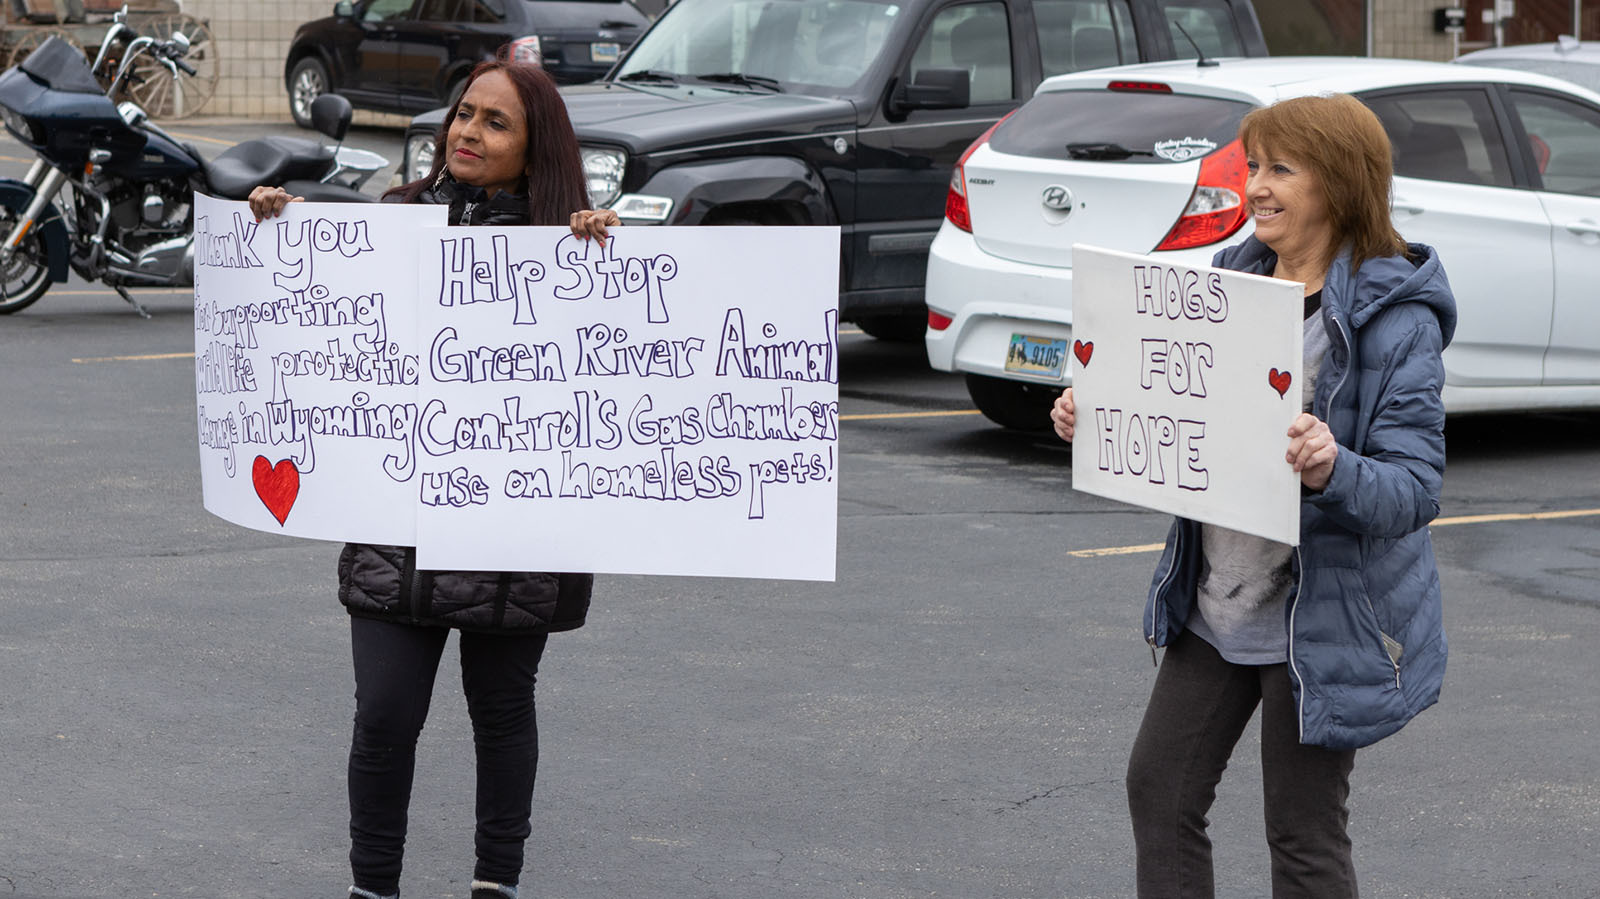 Thank you
for Supporting
wildlife protectio
change in Wyoming
Help Stop
Green River Animal
Control's Gas Chamber
use on homeless pets!
HOGS
FOR
HOPE
Harley-Davidson
ACCENT
9105